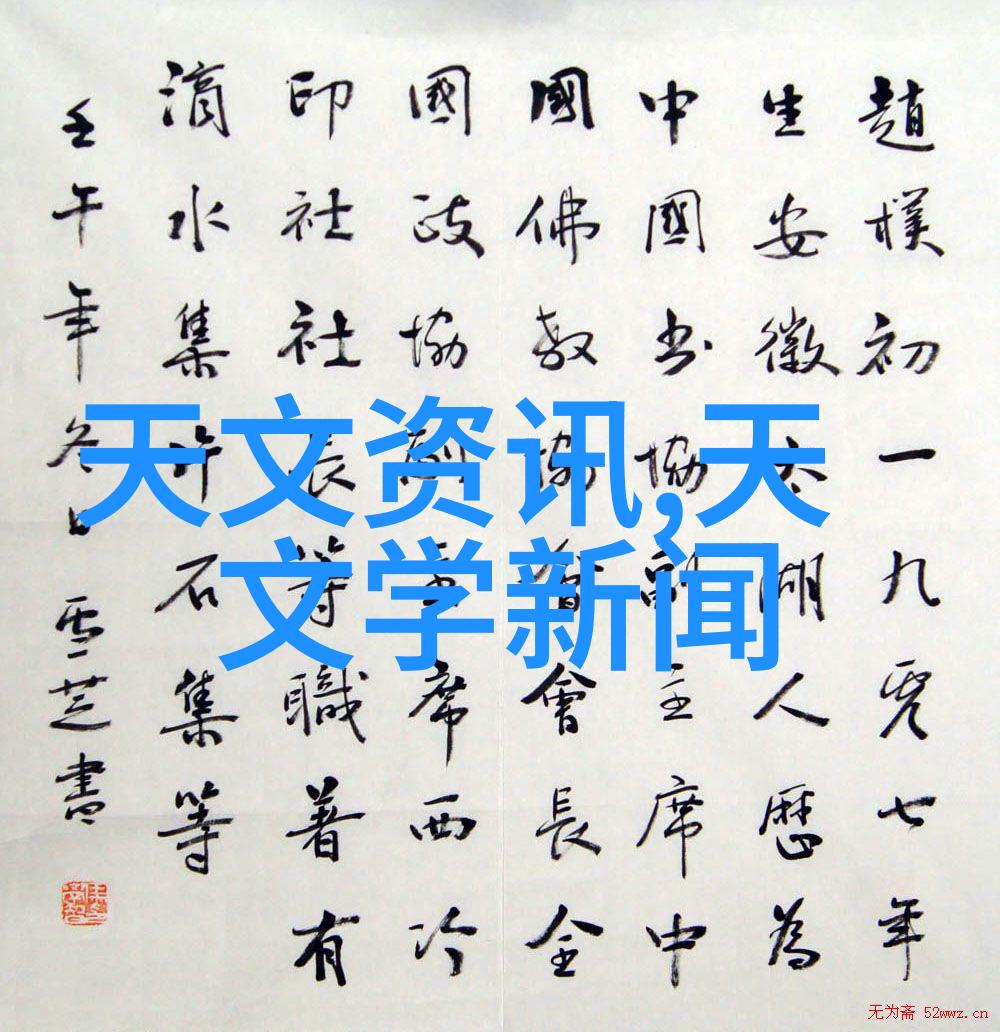 趙樸初一九零七年
生安徽太湖人歷為
中國书協副主席中
國佛教協會會長全
國政協副主席西冷
印社社長等職著有
滴水集片石集等
壬午年冬日雪芝書
天文资讯,天
文学新闻
无为斋 52wwz.cn